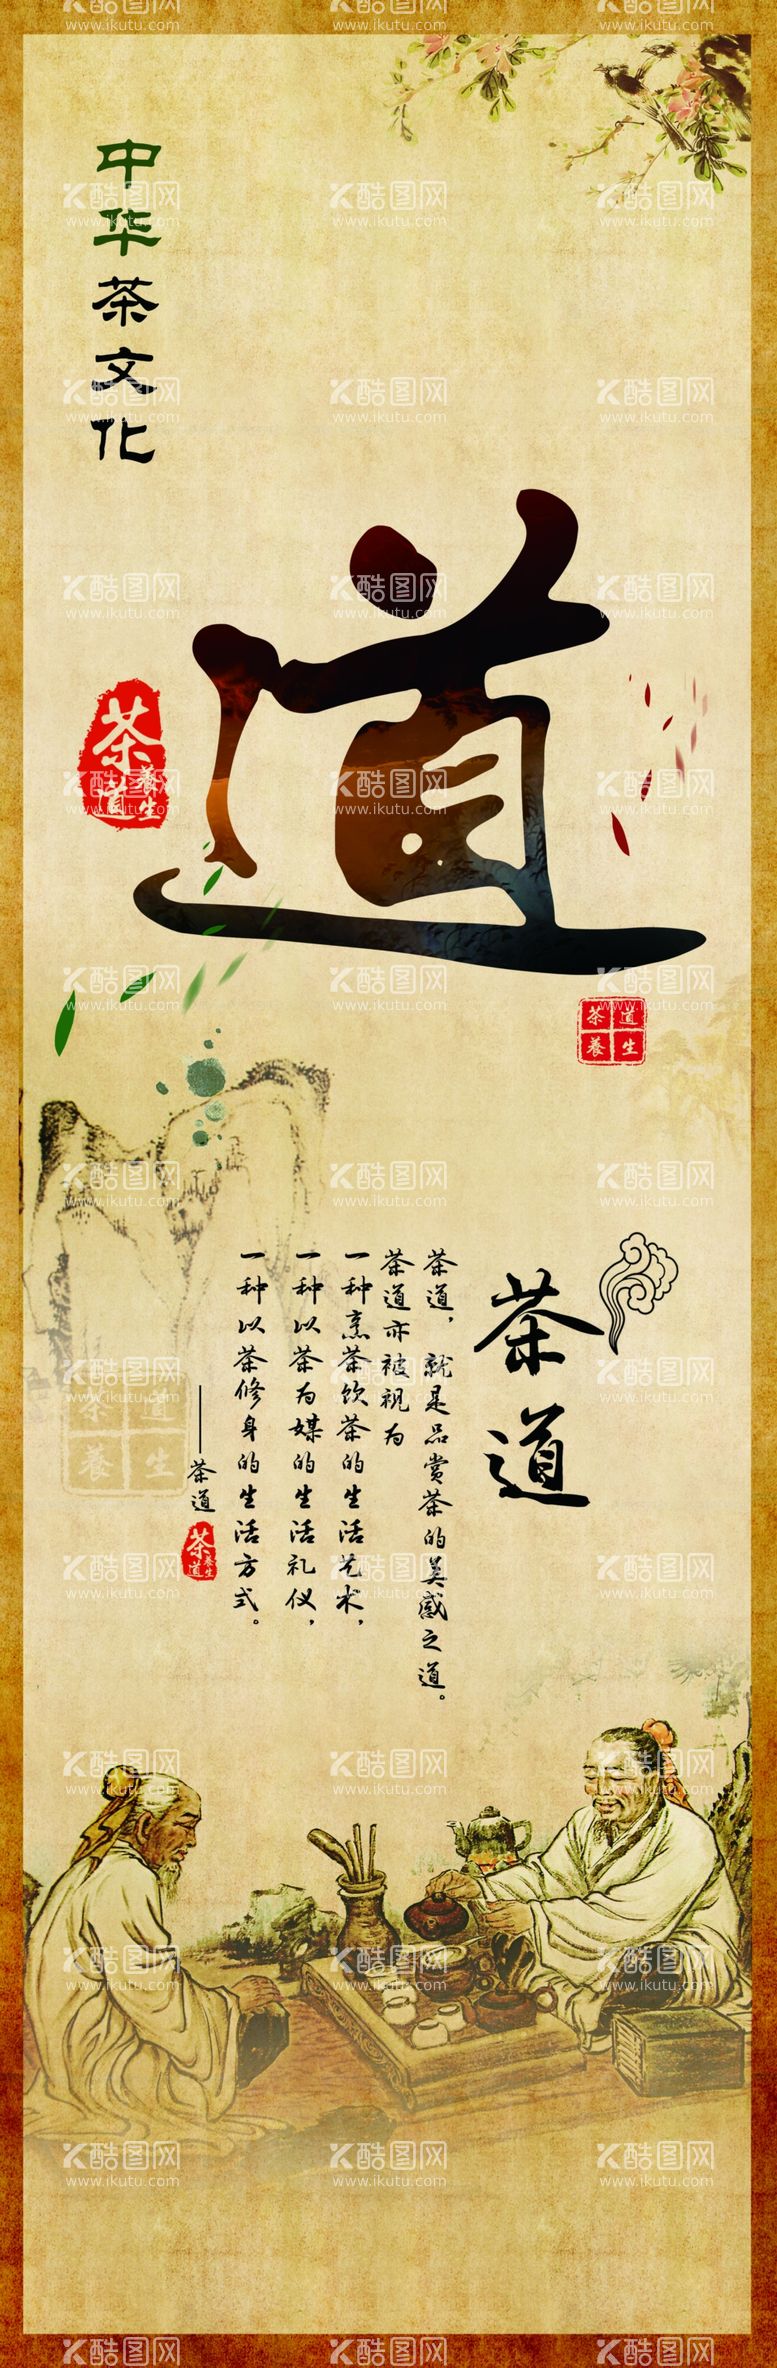 中华茶文化
道
茶道
养生
茶道
養生
茶道
茶道，就是品赏茶的美感之道。
茶道亦被视为
一种烹茶饮茶的生活艺术，
一种以茶为媒的生活礼仪，
一种以茶修身的生活方式。
——茶道
茶道
養生
茶道
養生
酷图网
www.ikutu.com